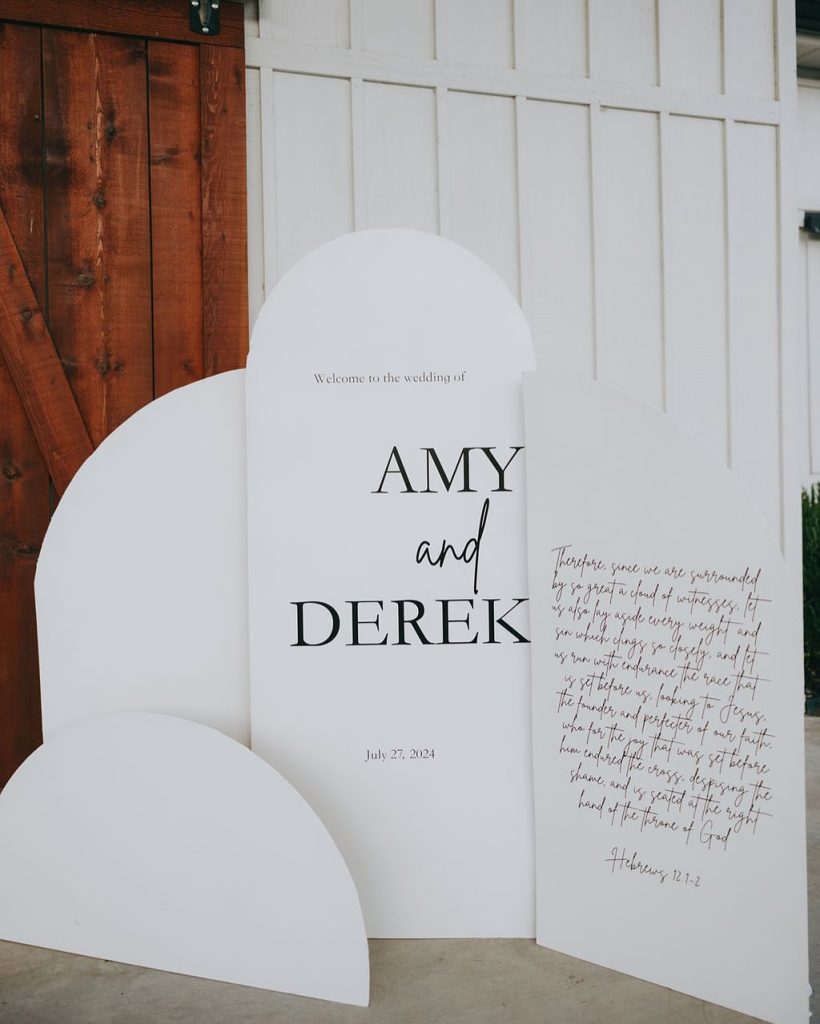 Welcome to the wedding of
AMY
and
DEREK
July 27, 2024
Therefore, since we are surrounded
by so great a cloud of witnesses, let
us also lay aside every weight and
sin which clings so closely, and let
us run with endurance the race that
is set before us, looking to Jesus,
the founder and perfecter of our faith,
who for the joy that was set before
him endured the cross, despising the
shame, and is seated at the right
hand of the throne of God
Hebrews 12:1-2